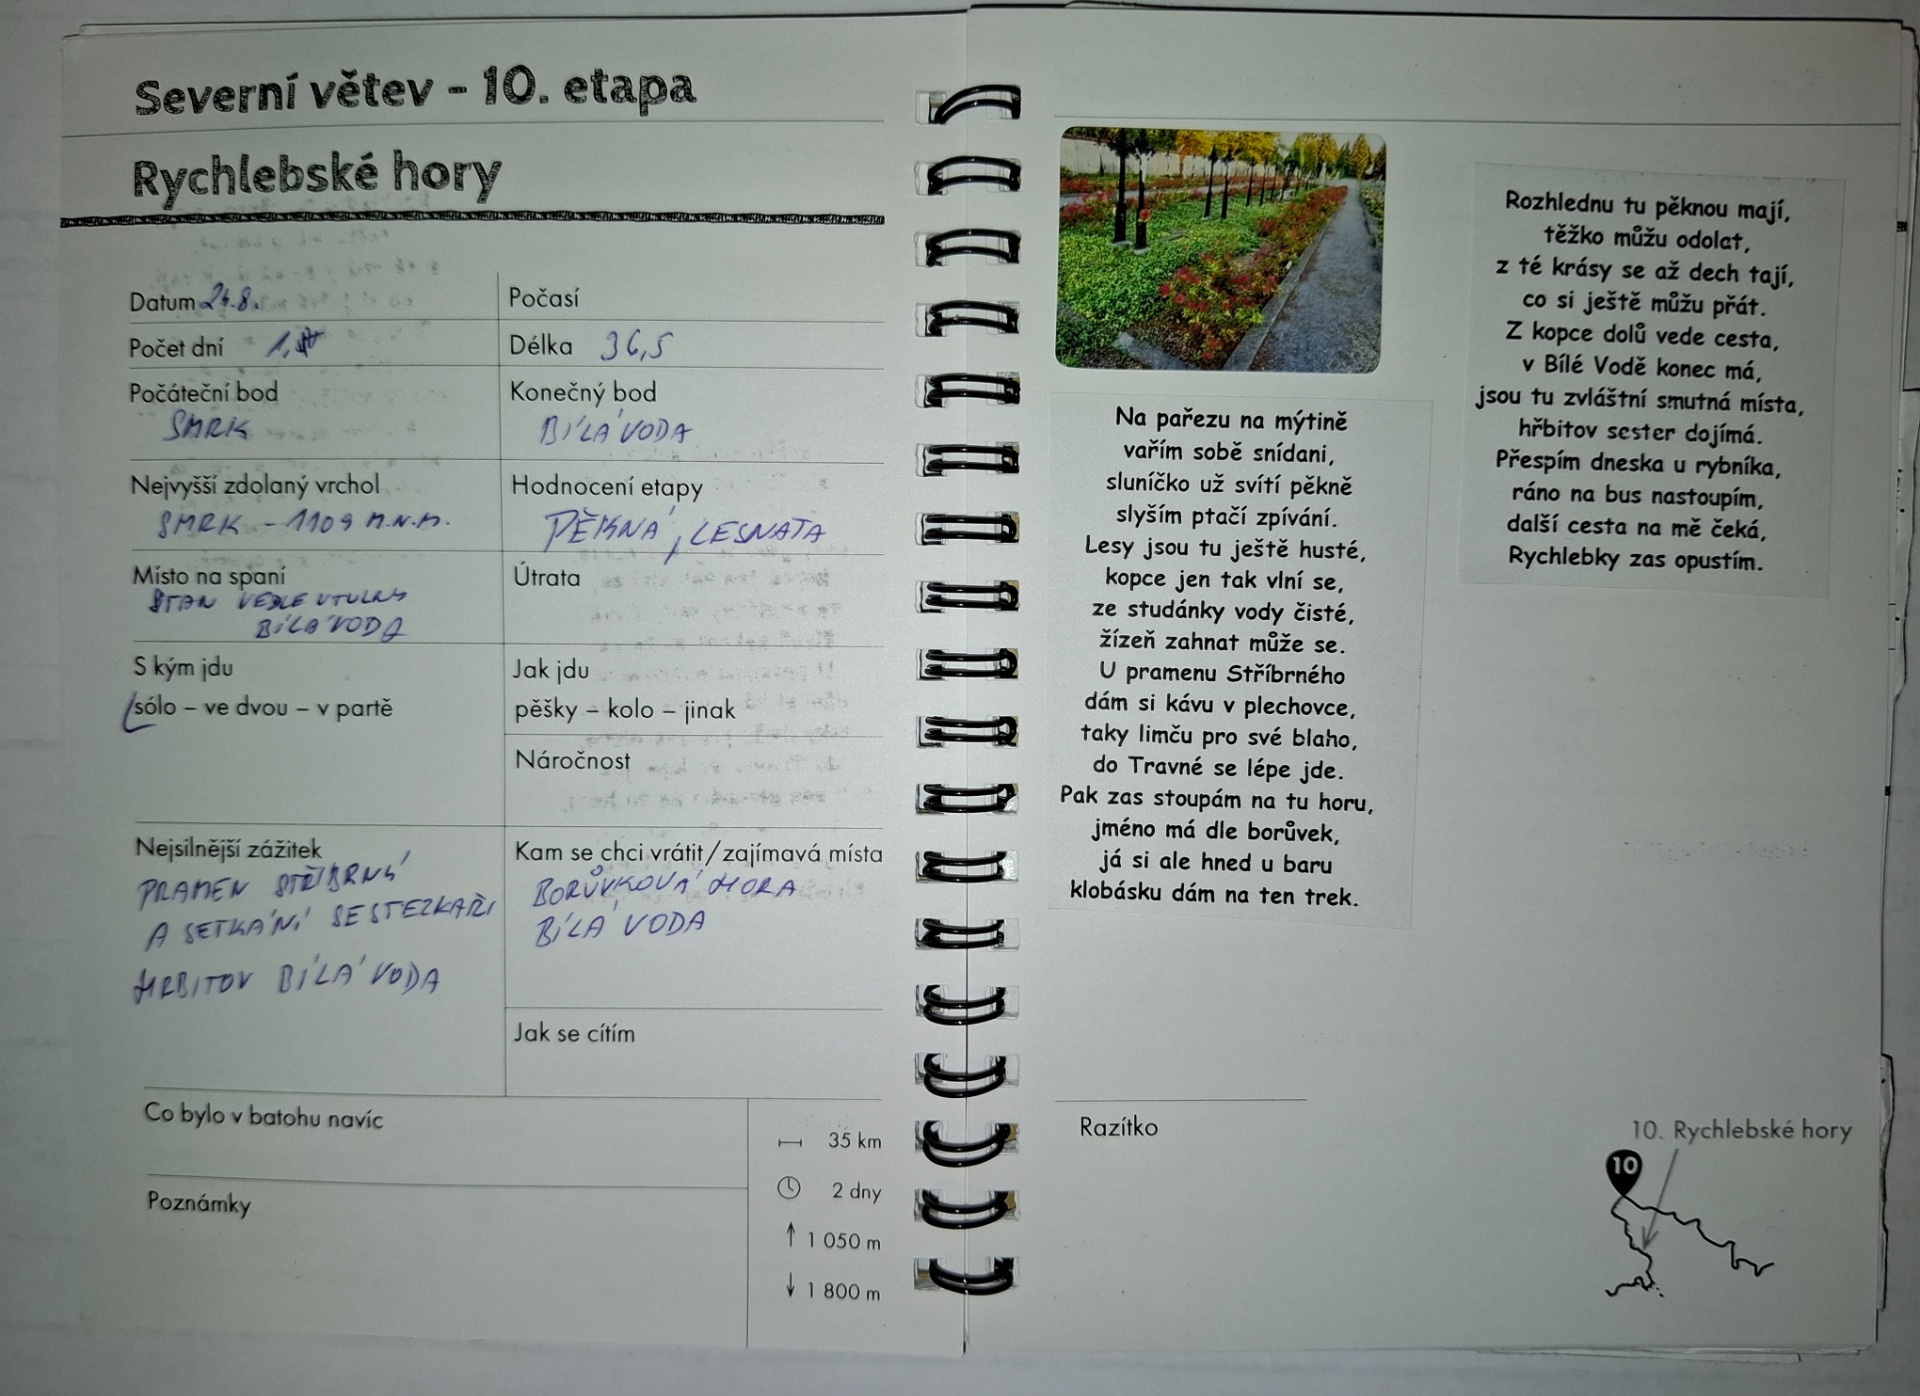 Severní větev - 10. etapa
Rychlebské hory
Datum 24.8.
Počasí
Počet dní 1,
Délka 36,5
Počáteční bod
SMRK
Konečný bod
BÍLÁ VODA
Nejvyšší zdolaný vrchol
SMRK - 1109 M.N.M.
Hodnocení etapy
PĚKNÁ, LESNATA
Místo na spaní
STAN VEDLE UTULNY
BÍLÁ VODA
Útrata
S kým jdu
sólo – ve dvou – v partě
Jak jdu
pěšky – kolo – jinak
Náročnost
Nejsilnější zážitek
PRAMEN STŘÍBRNÝ
A SETKÁNÍ SE STEZKAŘI
HRBITOV BÍLÁ VODA
Kam se chci vrátit/zajímavá místa
BORŮVKOVÁ HORA
BÍLÁ VODA
Jak se cítím
Co bylo v batohu navíc
Poznámky
35 km
2 dny
↑ 1 050 m
↓ 1 800 m
Na pařezu na mýtině
vařím sobě snídani,
sluníčko už svítí pěkně
slyším ptačí zpívání.
Lesy jsou tu ještě husté,
kopce jen tak vlní se,
ze studánky vody čisté,
žízeň zahnat může se.
U pramenu Stříbrného
dám si kávu v plechovce,
taky limču pro své blaho,
do Travné se lépe jde.
Pak zas stoupám na tu horu,
jméno má dle borůvek,
já si ale hned u baru
klobásku dám na ten trek.
Rozhlednu tu pěknou mají,
těžko můžu odolat,
z té krásy se až dech tají,
co si ještě můžu přát.
Z kopce dolů vede cesta,
v Bílé Vodě konec má,
jsou tu zvláštní smutná místa,
hřbitov sester dojímá.
Přespím dneska u rybníka,
ráno na bus nastoupím,
další cesta na mě čeká,
Rychlebky zas opustím.
Razítko
10. Rychlebské hory
10